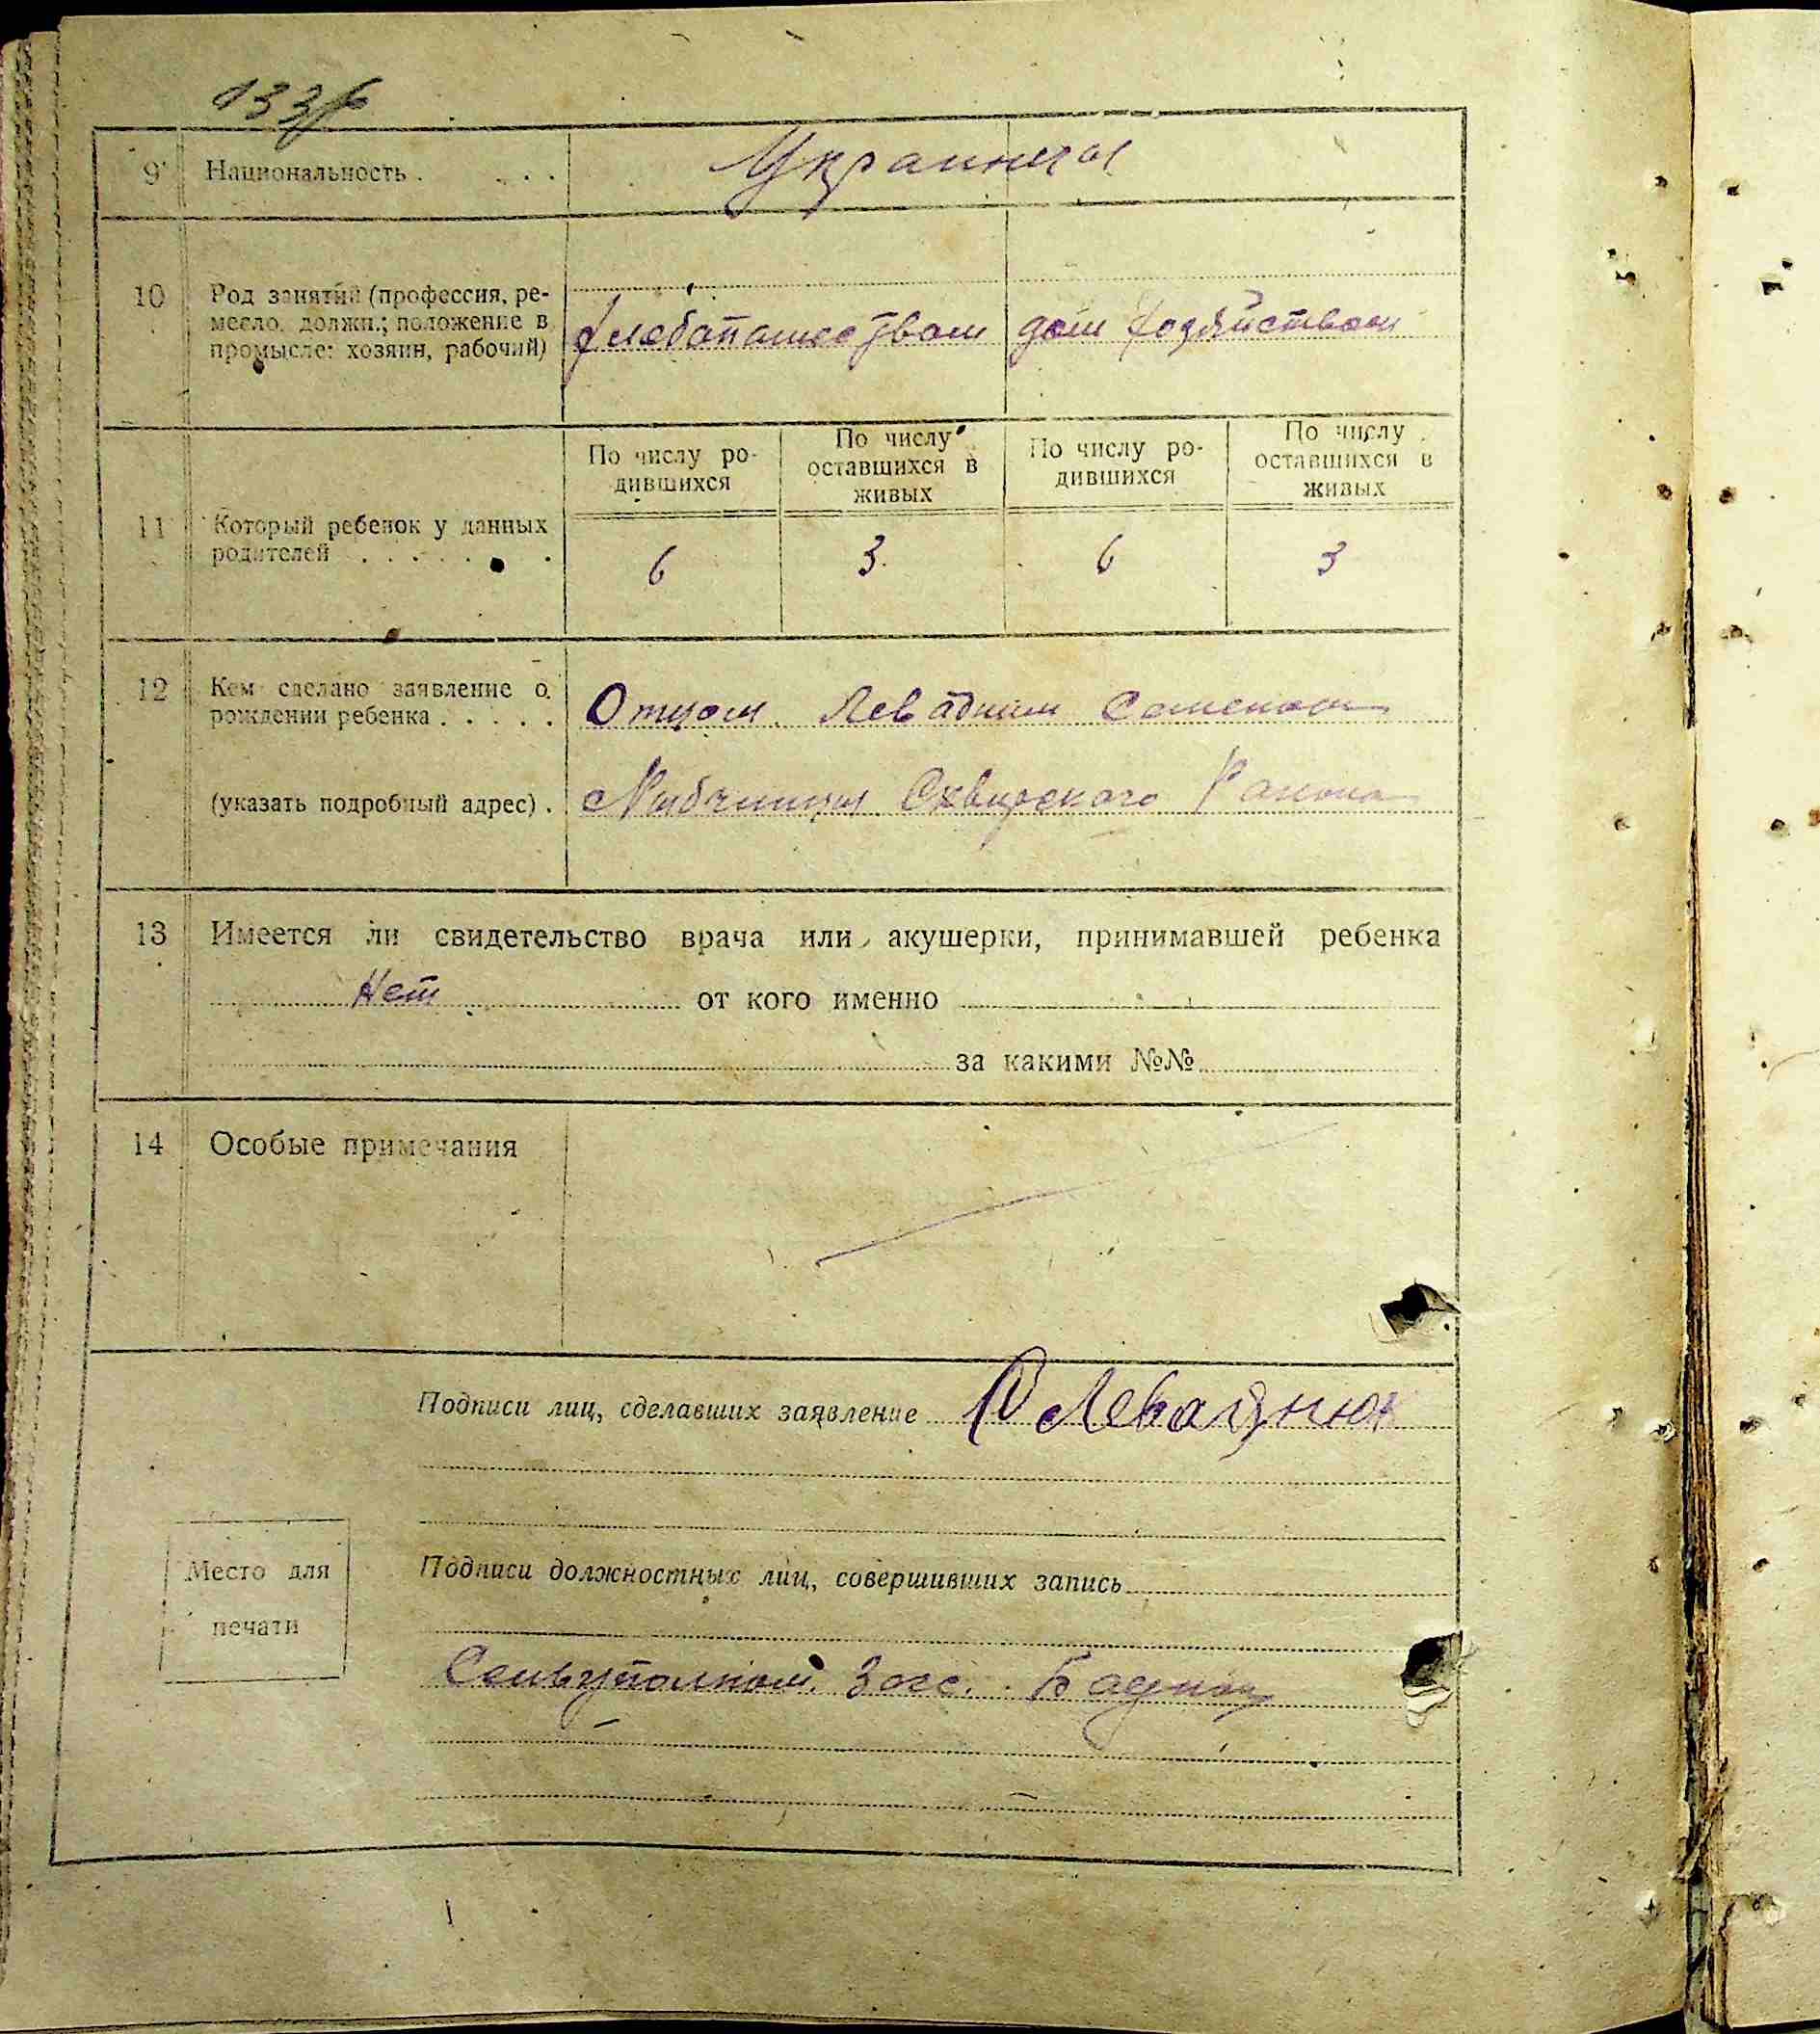 9 Национальность . . . . Украинцы
10 Род занятий (профессия, ре-
месло, должн.; положение в
промысле: хозяин, рабочий)
хлебопашеством дом хозяйством
По числу ро-
дившихся
По числу
оставшихся в
живых
По числу ро-
дившихся
По числу
оставшихся в
живых
11 Который ребенок у данных
родителей . . . . . . .
6 3 6 3
12 Кем сделано заявление о
рождении ребенка . . . . .
Отцом Левадним Семеном
(указать подробный адрес) .
Сквирского Района
13 Имеется ли свидетельство врача или акушерки, принимавшей ребенка
Нет от кого именно
за какими №№
14 Особые примечания
Подписи лиц, сделавших заявление
Место для
печати
Подписи должностных лиц, совершивших запись